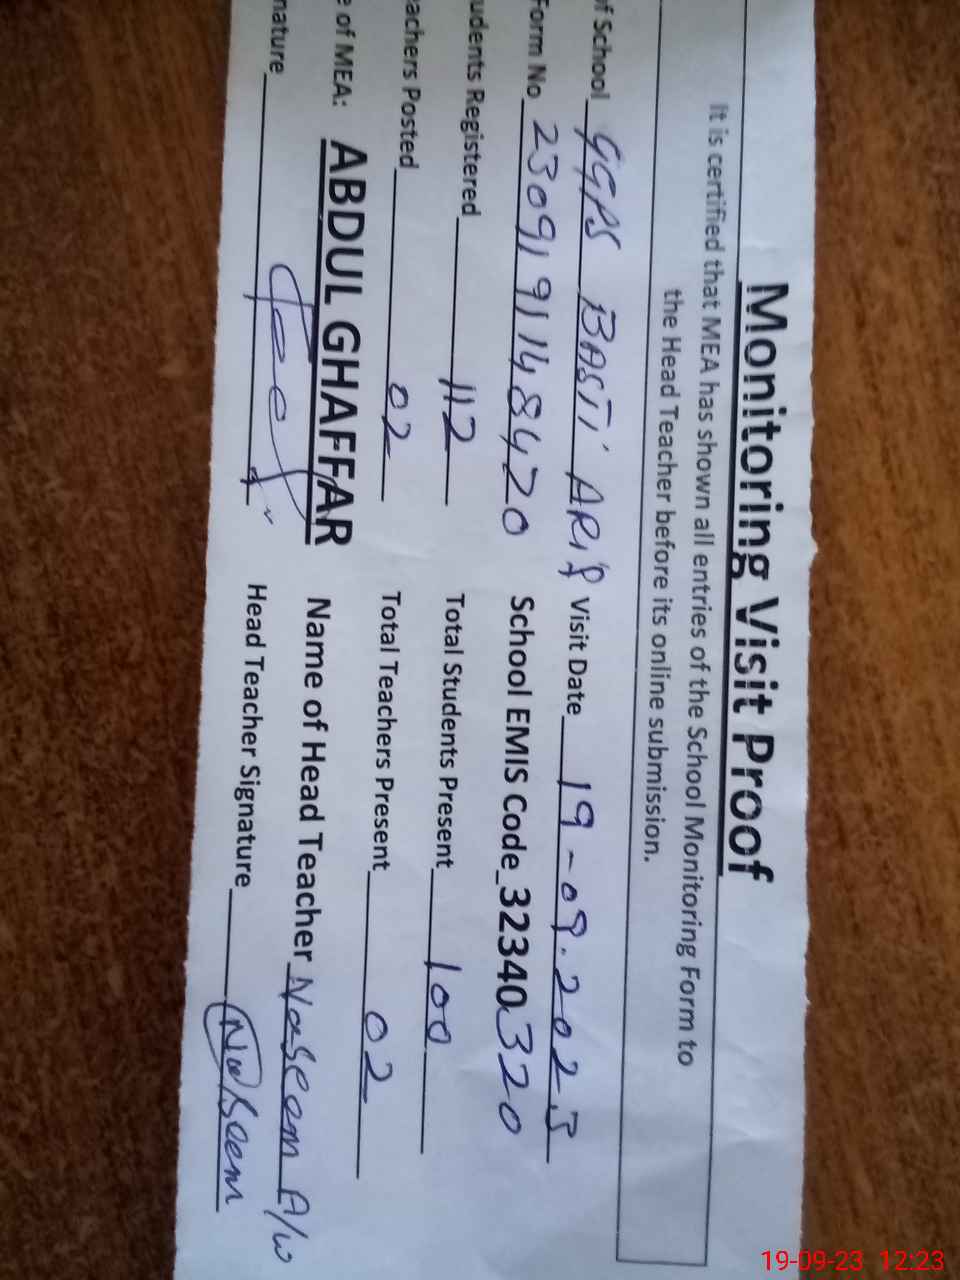 Monitoring Visit Proof
It is certified that MEA has shown all entries of the School Monitoring Form to
the Head Teacher before its online submission.
of School GGPS BASTI ARIF Visit Date 19-09.2023
Form No 2309191148420 School EMIS Code 32340320
udents Registered 112 Total Students Present 100
achers Posted 02 Total Teachers Present 02
e of MEA: ABDUL GHAFFAR Name of Head Teacher Naseem A/w
nature Head Teacher Signature Naseem
19-09-23 12:23